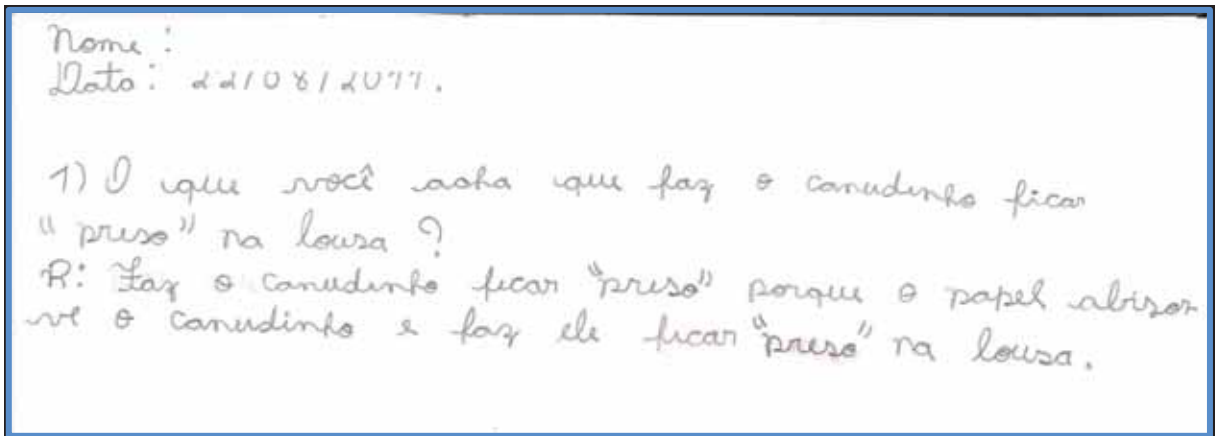 Nome :
Data: 22/08/2011.
1) O que você acha que faz o canudinho ficar
"preso" na lousa ?
R: Faz o canudinho ficar "preso" porque o papel abizor
ve o canudinho e faz ele ficar "preso" na lousa.